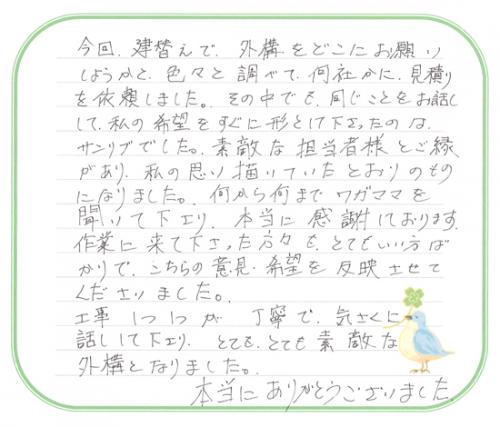 今回、建替えで、外構をどこにお願い
しようかと、色々と調べて、何社かに、見積り
を依頼しました。その中でも、同じことをお話し
して、私の希望をすぐに形として下さったのは、
サンリブでした。素敵な担当者様とご縁
があり、私の思い描いていたとおりのもの
になりました。何から何までワガママを
聞いて下さり、本当に感謝しております。
作業に来て下さった方々も、とてもいい方ば
かりで、こちらの意見・希望を反映させて
くださりました。
工事1つ1つが丁寧で、気さくに
話して下さり、とても、とても素敵な
外構となりました。
本当にありがとうございました。